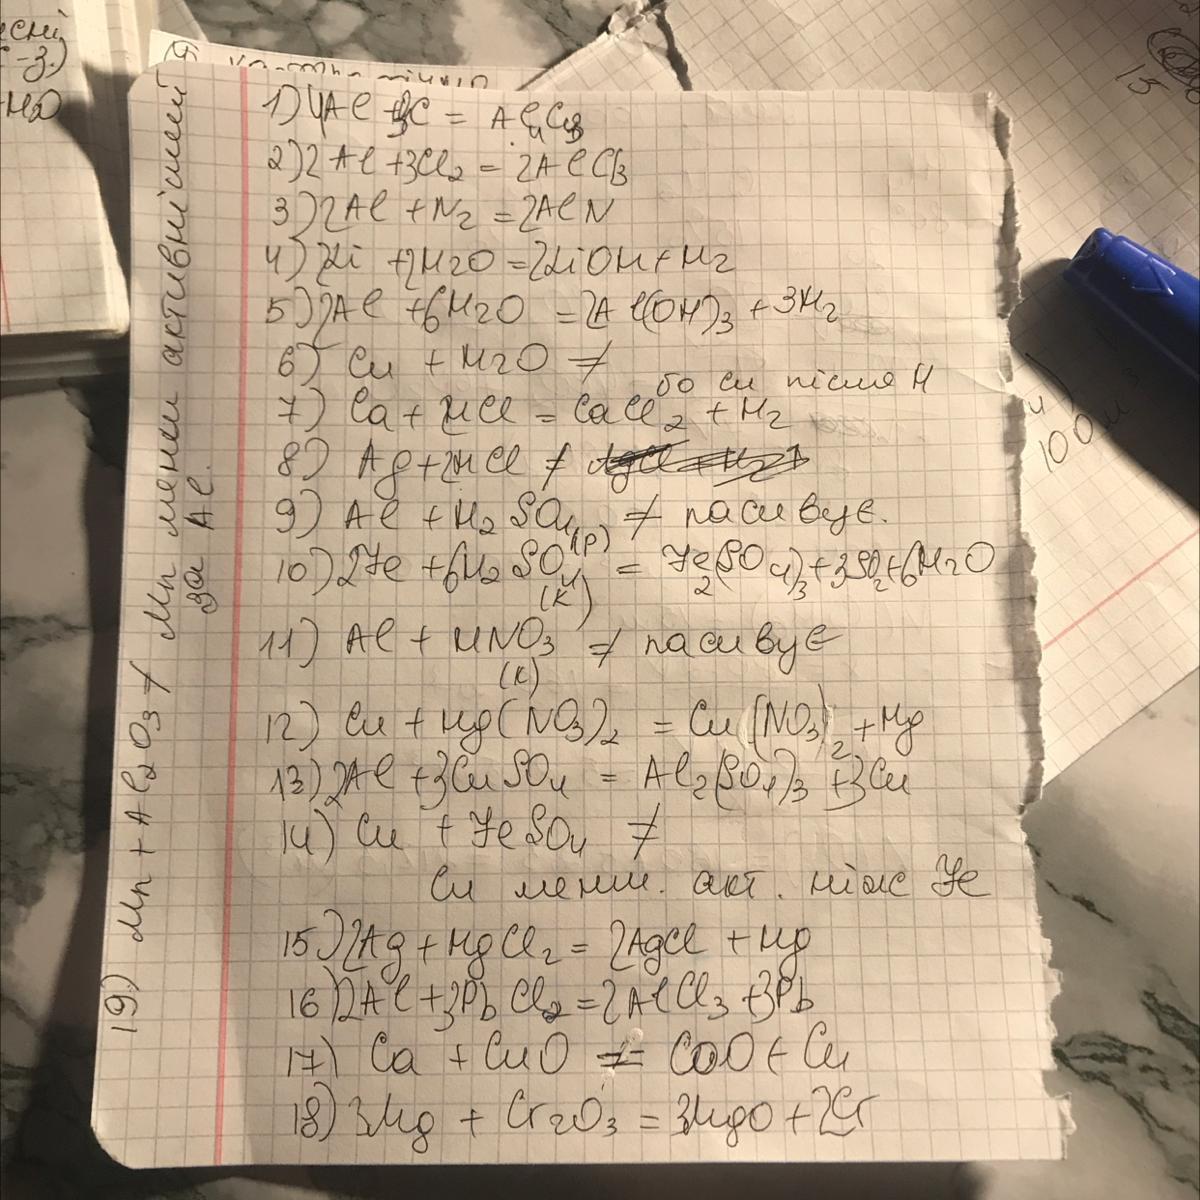 1) 4Al + 3C = Al4C3
2) 2Al + 3Cl2 = 2AlCl3
3) 2Al + N2 = 2AlN
4) 2Li + 2H2O = 2LiOH + H2
5) 2Al + 6H2O = 2Al(OH)3 + 3H2
6) Cu + H2O ≠
бо Cu після H
7) Ca + 2HCl = CaCl2 + H2
8) Ag + 2HCl ≠
9) Al + H2SO4(р) ≠ пасивує.
10) 2Fe + 6H2SO4(к) = Fe2(SO4)3 + 3SO2 + 6H2O
11) Al + HNO3(к) ≠ пасивує
12) Cu + Hg(NO3)2 = Cu(NO3)2 + Hg
13) 2Al + 3CuSO4 = Al2(SO4)3 + 3Cu
14) Cu + FeSO4 ≠
Cu менш. акт. ніж Fe
15) 2Ag + HgCl2 = 2AgCl + Hg
16) 2Al + 3PbCl2 = 2AlCl3 + 3Pb
17) Ca + CuO = CaO + Cu
18) 3Mg + Cr2O3 = 3MgO + 2Cr
19) Mn + Al2O3 ≠ Mn менш активніший
за Al.
-3.)
H2O
15
100